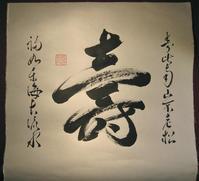 壽比南山不老松
壽
福如東海長流水